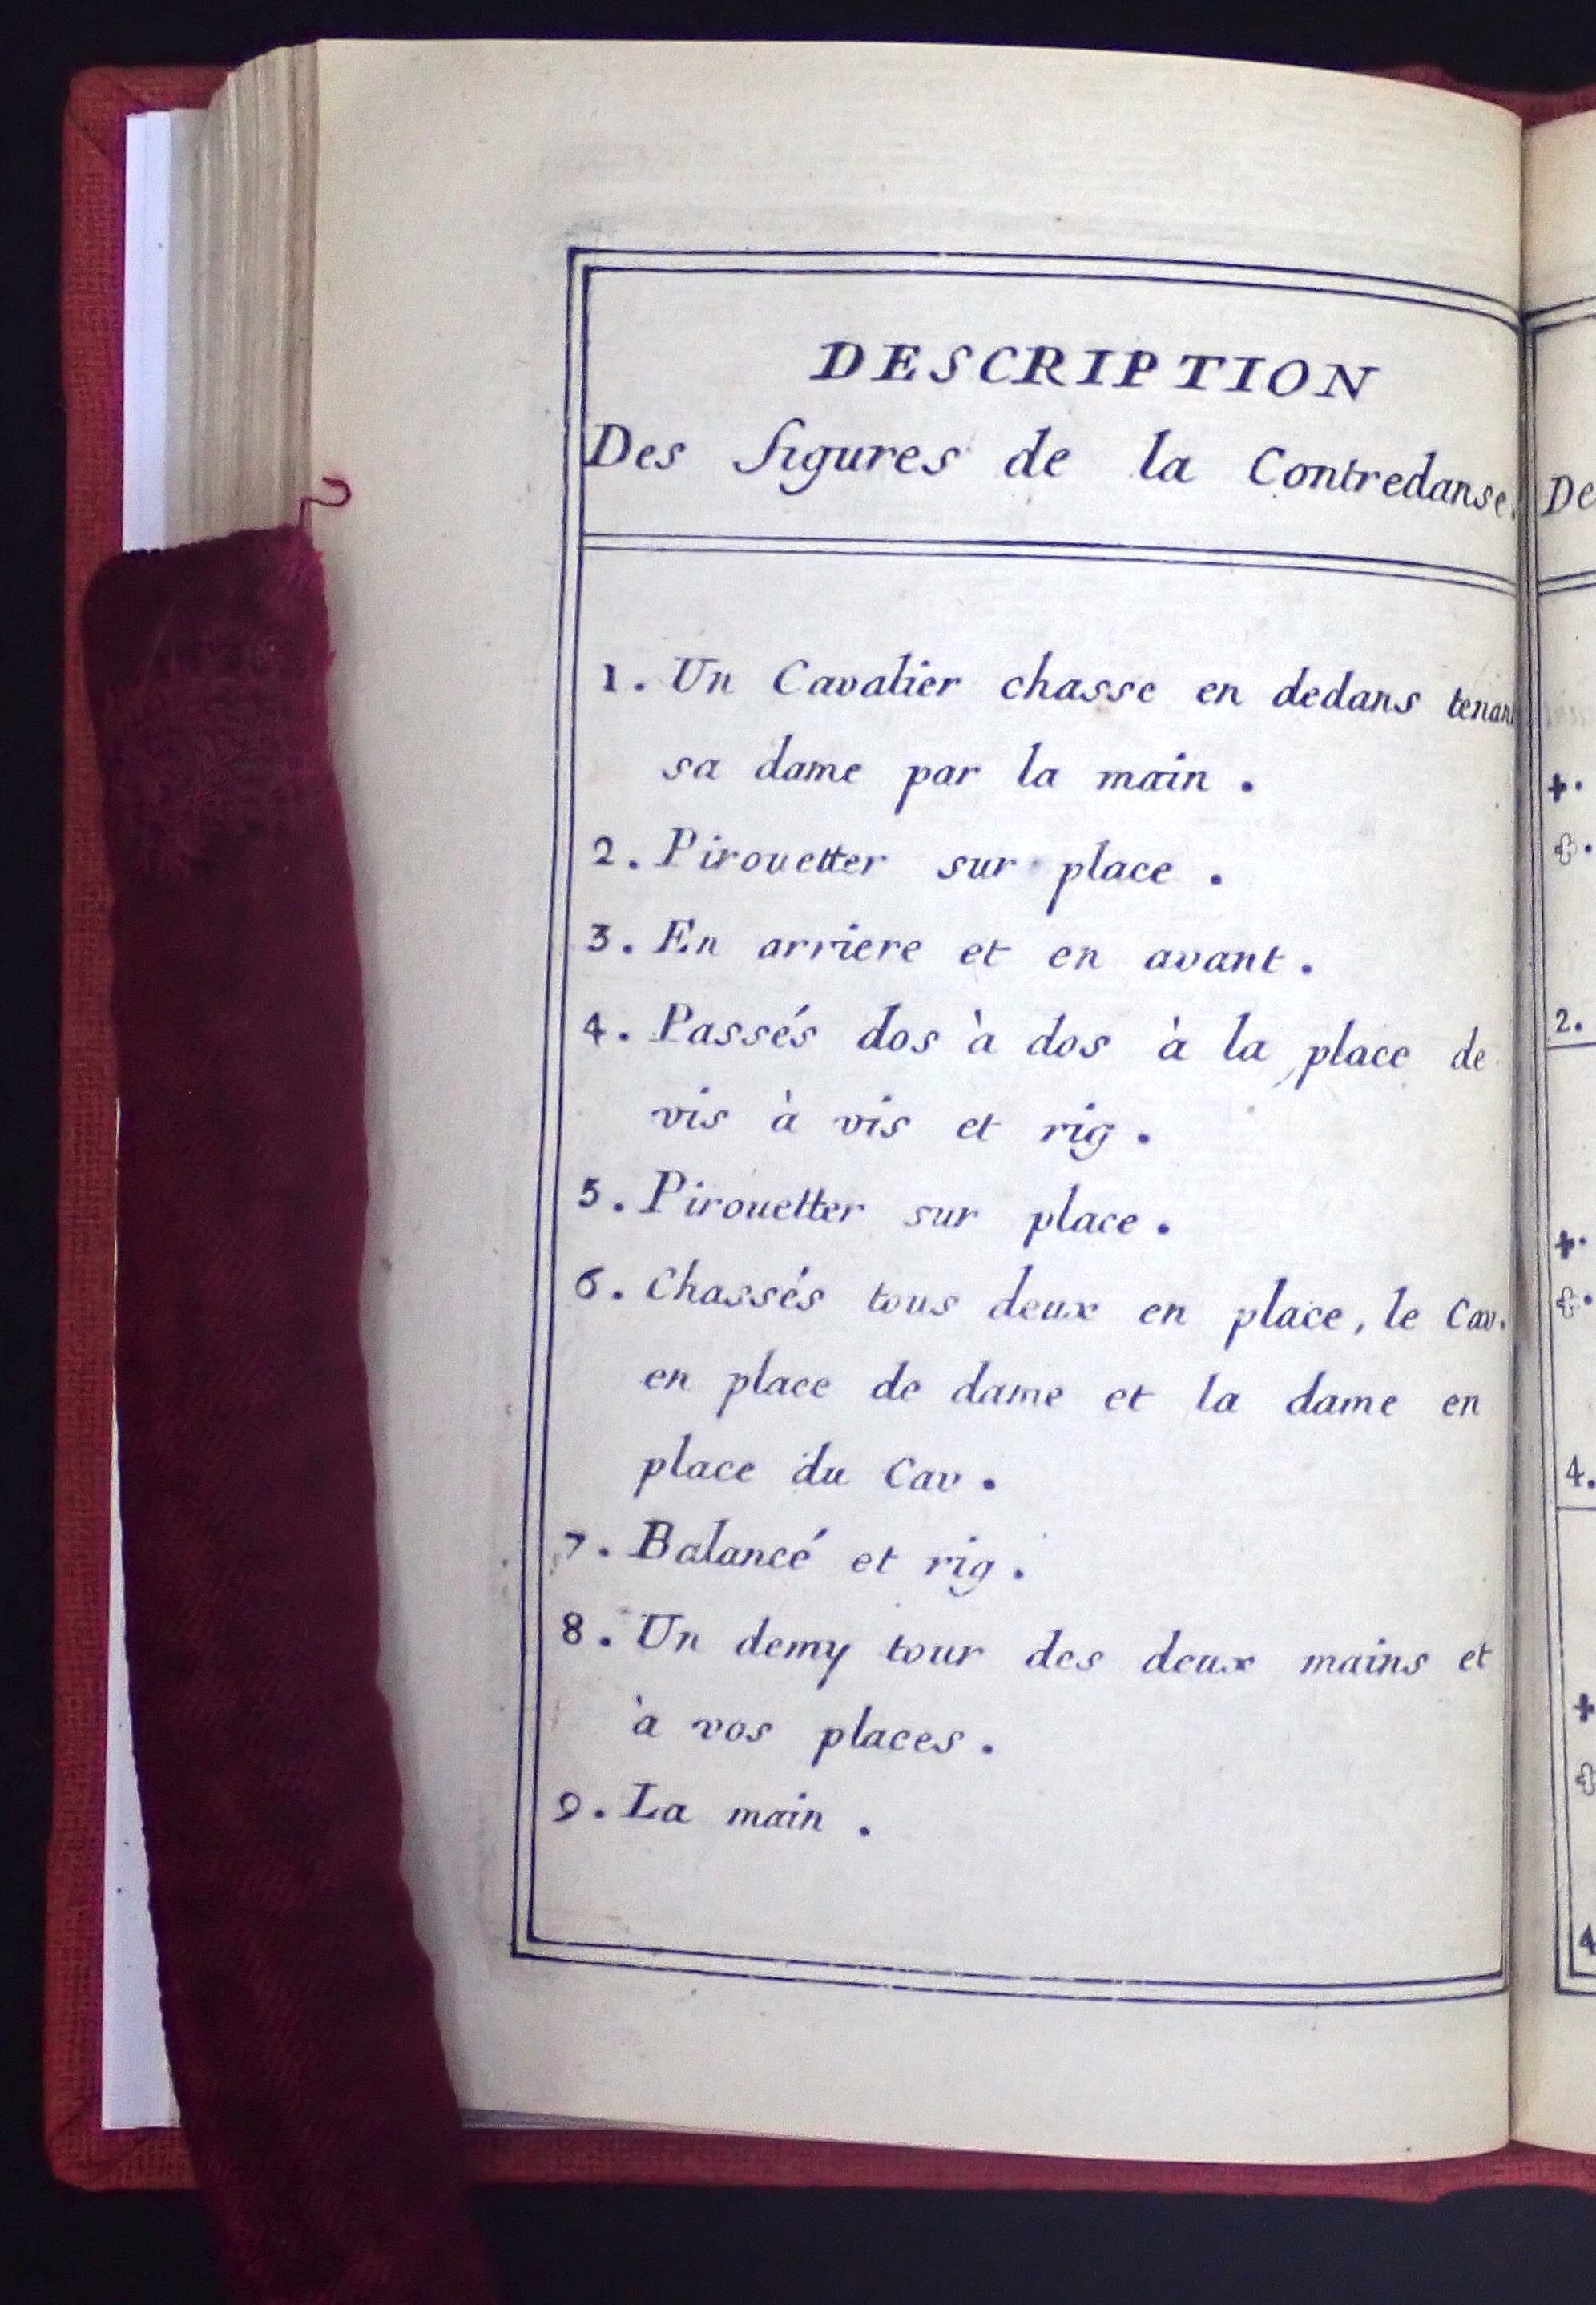 DESCRIPTION
Des figures de la Contredanse.
1. Un Cavalier chasse en dedans tenant
sa dame par la main .
2. Pirouetter sur place .
3. En arriere et en avant .
4. Passés dos à dos à la place de
vis à vis et rig .
5. Pirouetter sur place .
6. Chassés tous deux en place, le Cav.
en place de dame et la dame en
place du Cav .
7. Balancé et rig .
8. Un demy tour des deux mains et
à vos places .
9. La main .
De
2.
4.
4